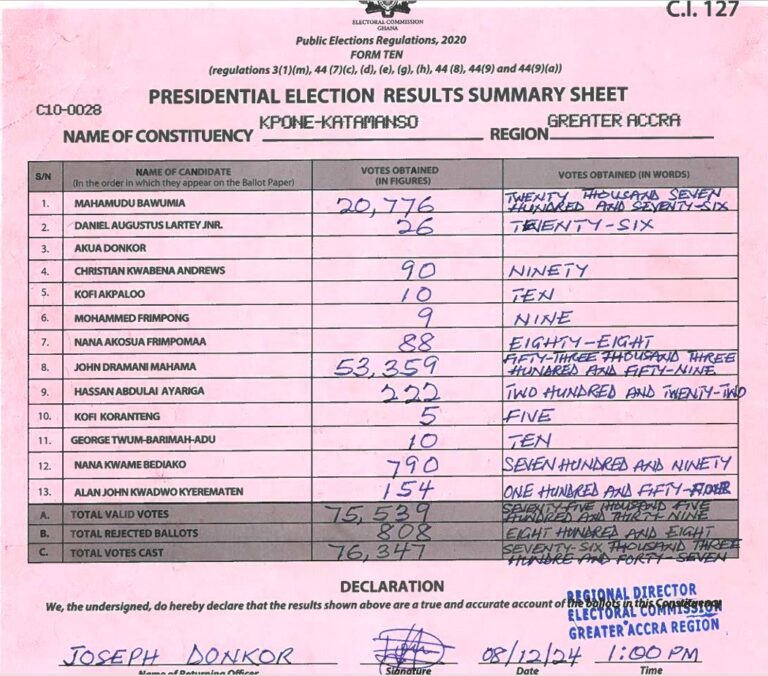 C.I. 127
ELECTORAL COMMISSION
GHANA
Public Elections Regulations, 2020
FORM TEN
(regulations 3(1)(m), 44 (7)(c), (d), (e), (g), (h), 44 (8), 44(9) and 44(9)(a))
PRESIDENTIAL ELECTION RESULTS SUMMARY SHEET
C10-0028
NAME OF CONSTITUENCY KPONE-KATAMANSO REGION GREATER ACCRA
S/N NAME OF CANDIDATE (In the order in which they appear on the Ballot Paper) VOTES OBTAINED (IN FIGURES) VOTES OBTAINED (IN WORDS)
1. MAHAMUDU BAWUMIA 20,776 TWENTY THOUSAND SEVEN HUNDRED AND SEVENTY-SIX
2. DANIEL AUGUSTUS LARTEY JNR. 26 TWENTY-SIX
3. AKUA DONKOR
4. CHRISTIAN KWABENA ANDREWS 90 NINETY
5. KOFI AKPALOO 10 TEN
6. MOHAMMED FRIMPONG 9 NINE
7. NANA AKOSUA FRIMPOMAA 88 EIGHTY-EIGHT
8. JOHN DRAMANI MAHAMA 53,359 FIFTY-THREE THOUSAND THREE HUNDRED AND FIFTY-NINE
9. HASSAN ABDULAI AYARIGA 222 TWO HUNDRED AND TWENTY-TWO
10. KOFI KORANTENG 5 FIVE
11. GEORGE TWUM-BARIMAH-ADU 10 TEN
12. NANA KWAME BEDIAKO 790 SEVEN HUNDRED AND NINETY
13. ALAN JOHN KWADWO KYEREMATEN 154 ONE HUNDRED AND FIFTY-FOUR
A. TOTAL VALID VOTES 75,539 SEVENTY-FIVE THOUSAND FIVE HUNDRED AND THIRTY-NINE
B. TOTAL REJECTED BALLOTS 808 EIGHT HUNDRED AND EIGHT
C. TOTAL VOTES CAST 76,347 SEVENTY-SIX THOUSAND THREE HUNDRE AND FORTY-SEVEN
DECLARATION
We, the undersigned, do hereby declare that the results shown above are a true and accurate account of the ballots in this Constituency
REGIONAL DIRECTOR
ELECTORAL COMMISSION
GREATER ACCRA REGION
JOSEPH DONKOR 08/12/24 1:00 PM
Name of Returning Officer Signature Date Time